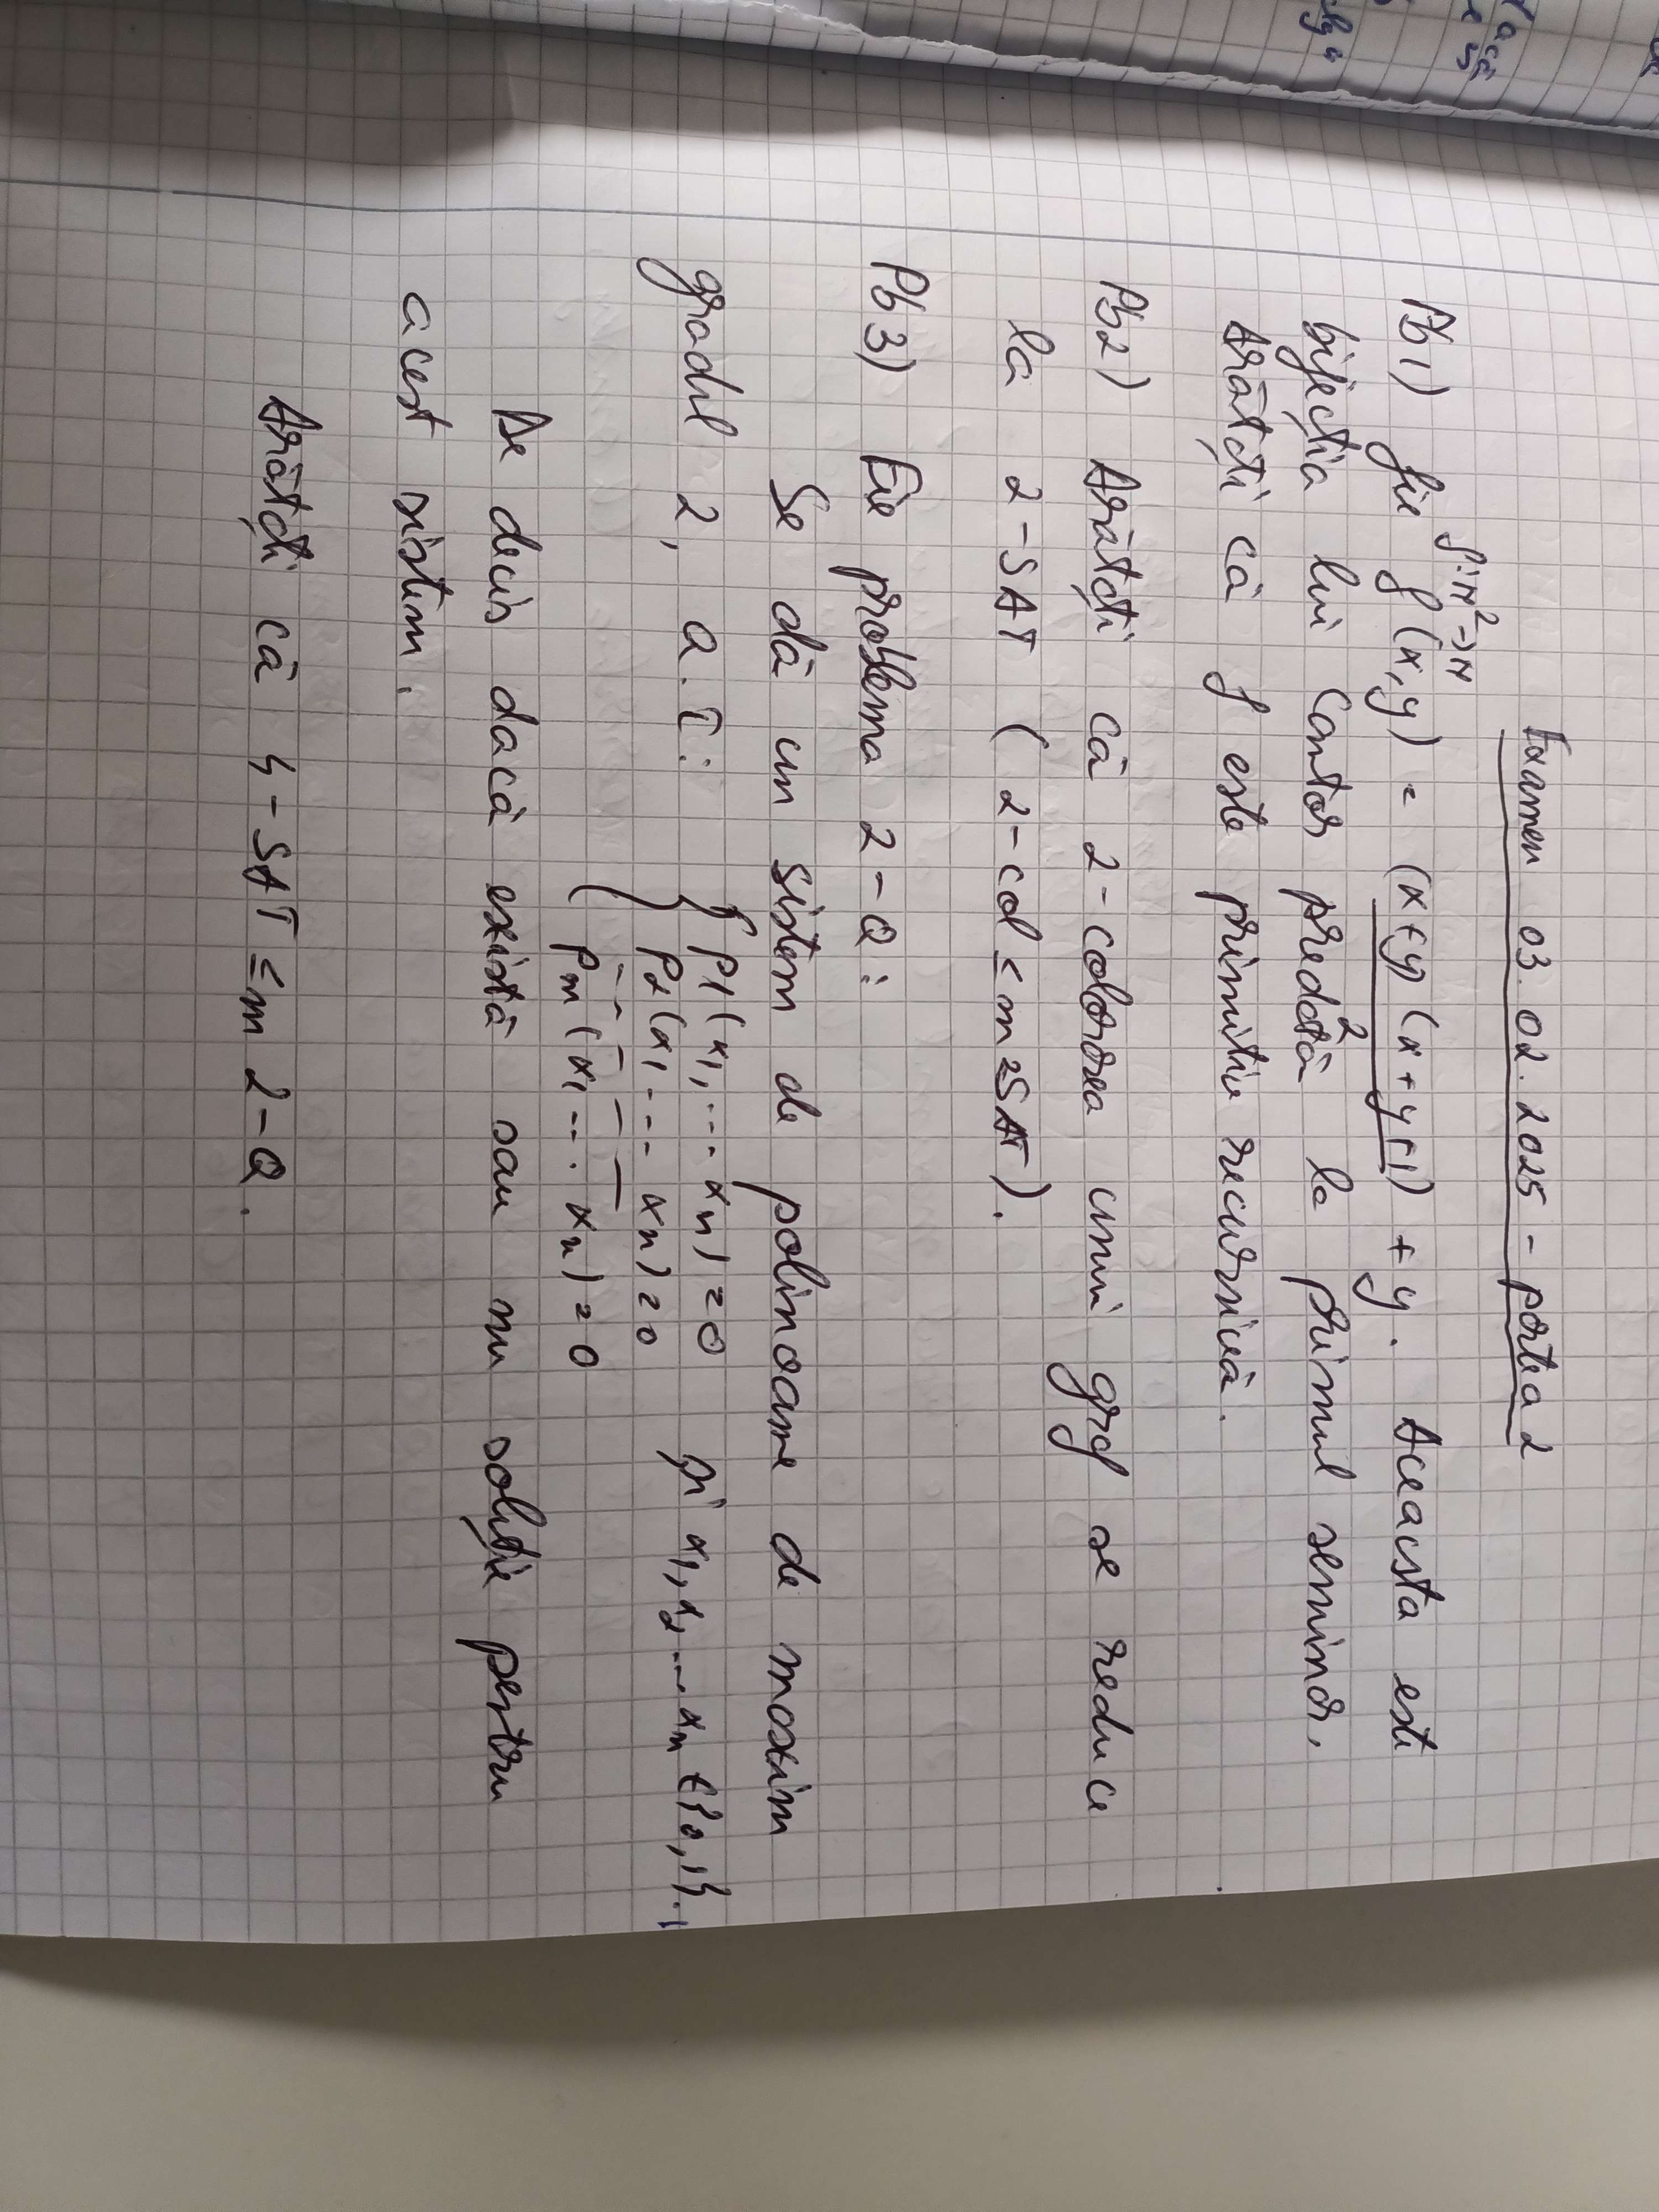 Examen 03.02.2025 - partea 2
f:ℕ²→ℕ
Pb1) fie f(x,y) = (x+y)(x+y+1)/2 + y. Aceasta este
bijecția lui Cantor predată la primul seminar.
Arătați că f este primitiv recursivă.
Pb2) Arătați că 2-colorarea unui graf se reduce
la 2-SAT (2-col ≤m 2SAT).
Pb3) Fie problema 2-Q:
Se dă un sistem de polinoame de maxim
gradul 2, a.î: { p1(x1,... xn) = 0 și x1, x2 ... xn ∈ {0,1}.
p2(x1 ... xn) = 0
pm(x1 ... xn) = 0
De decis dacă există sau nu soluție pentru
acest sistem.
Arătați că 4-SAT ≤m 2-Q.